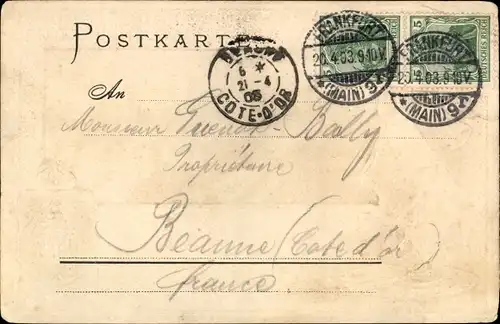 POSTKARTE
FRANKFURT
20.4.03.9-10V.
*(MAIN) 9
FRANKFURT
20.4.03.9-10V.
*(MAIN) 9
5
DEUTSCHES REICH
BEAUNE
6 *
21 -4
03
COTE-D'OR
An
Monsieur Bailly
Propriétaire
Beaune (Cote d'or)
france